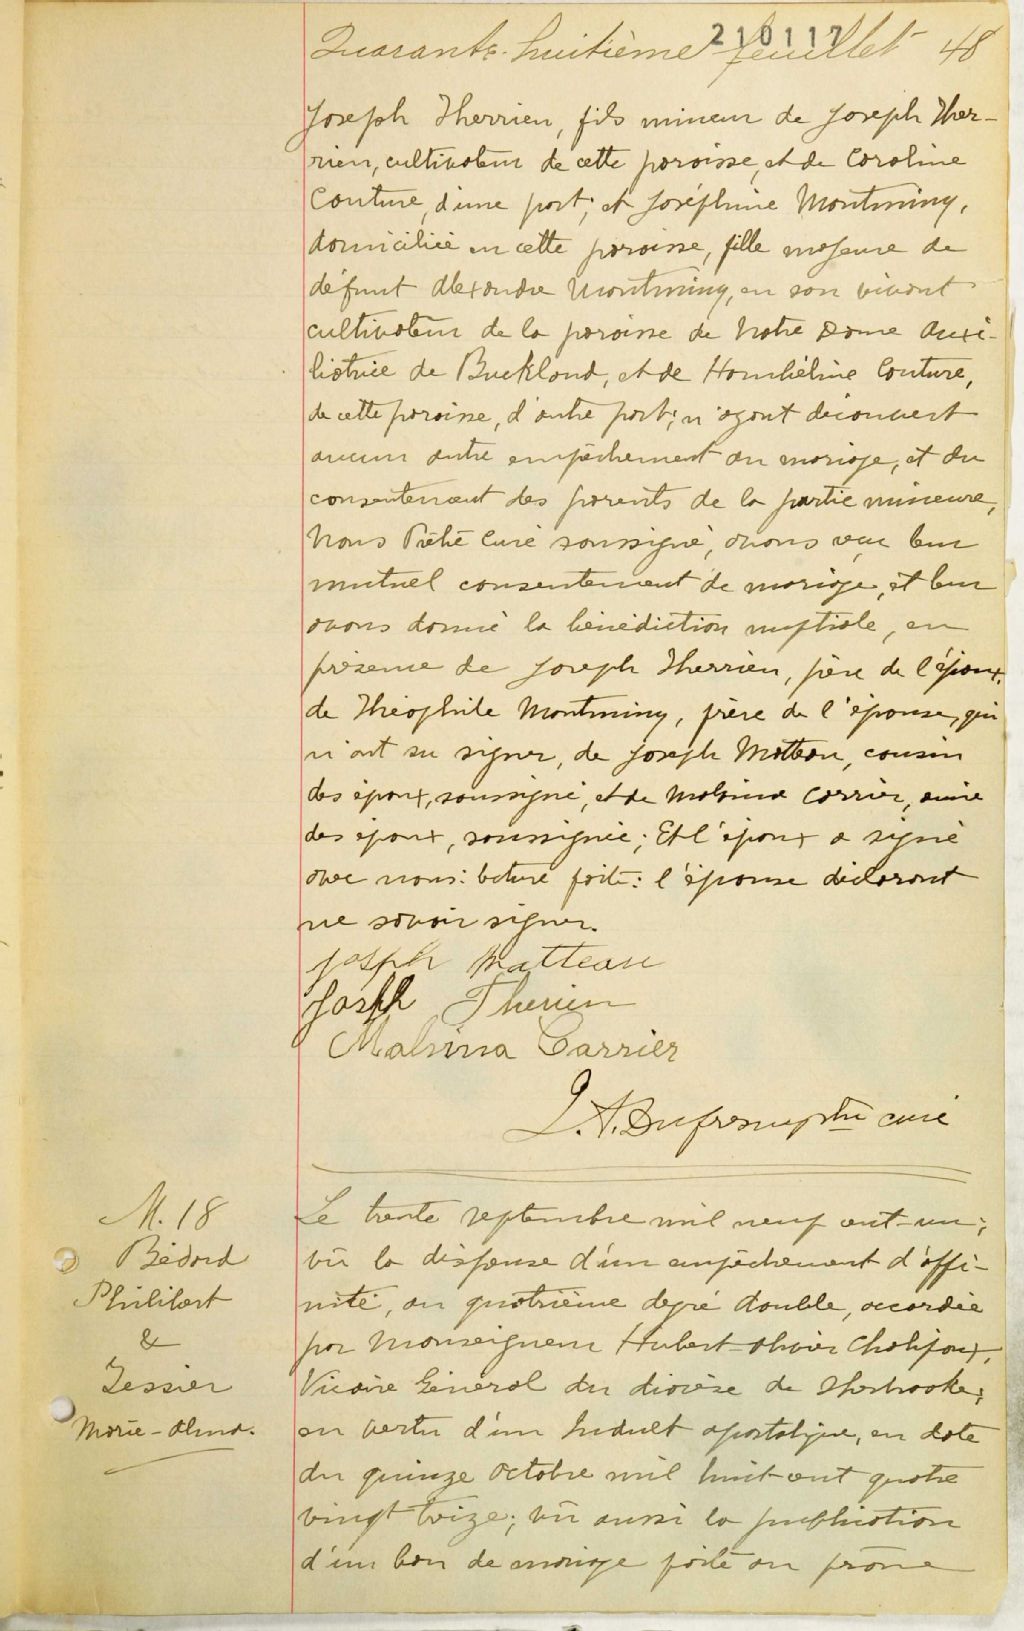 210117
Quarante-huitième feuillet 48
Joseph Therrien, fils mineur de Joseph Ther-
rien, cultivateur de cette paroisse, et de Caroline
Couture, d'une part; et Joséphine Montminy,
domiciliée en cette paroisse, fille majeure de
défunt Alexandre Montminy, en son vivant
cultivateur de la paroisse de Notre Dame Auxi-
liatrice de Buckland, et de Hombéline Couture,
de cette paroisse, d'autre part; n'ayant découvert
aucun autre empêchement au mariage, et du
consentement des parents de la partie mineure,
Nous Prêtre Curé soussigné, avons reçu leur
mutuel consentement de mariage, et leur
avons donné la bénédiction nuptiale, en
présence de Joseph Therrien, père de l'époux,
de Théophile Montminy, frère de l'épouse, qui
n'ont su signer, de Joseph Matteau, cousin
des époux, soussigné, et de Malvina Carrier, amie
des époux, soussignée; Et l'époux a signé
avec nous: lecture faite: l'épouse déclarant
ne savoir signer.
Joseph Matteau
Joseph Therien
Malvina Carrier
L. A. Dufresne ptre curé
M. 18
Bédard
Philibert
&
Tessier
Marie-Alma.
Le trente septembre mil neuf cent-un;
vû la dispense d'un empêchement d'affi-
nité, au quatrième degré double, accordée
par Monseigneur Hubert-Olivier Chalifoux,
Vicaire Général du diocèse de Sherbrooke;
en vertu d'un Indult apostolique, en date
du quinze Octobre mil huit-cent quatre
vingt treize; vû aussi la publication
d'un ban de mariage faite au prône